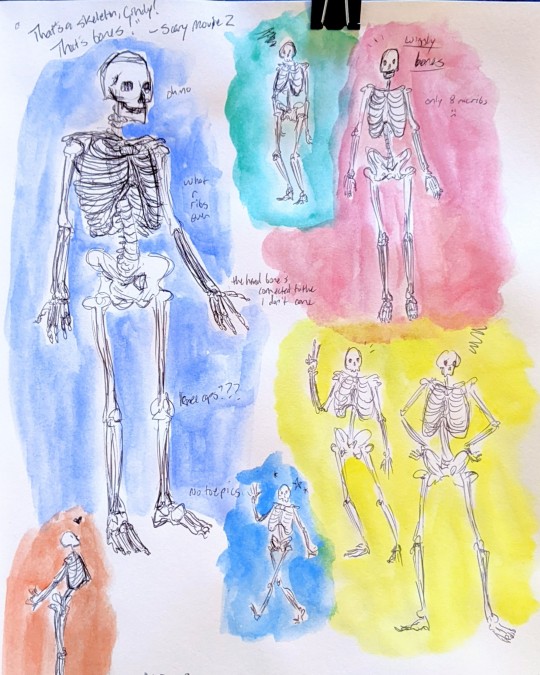 "That's a skeleton, Cindy!
That's bones!" ~ Scary Movie 2
wiggly
bones
only 8 ribs
what
r
ribs
even
the hand bone's
connected to the
I don't care
knee caps???
no toe pics